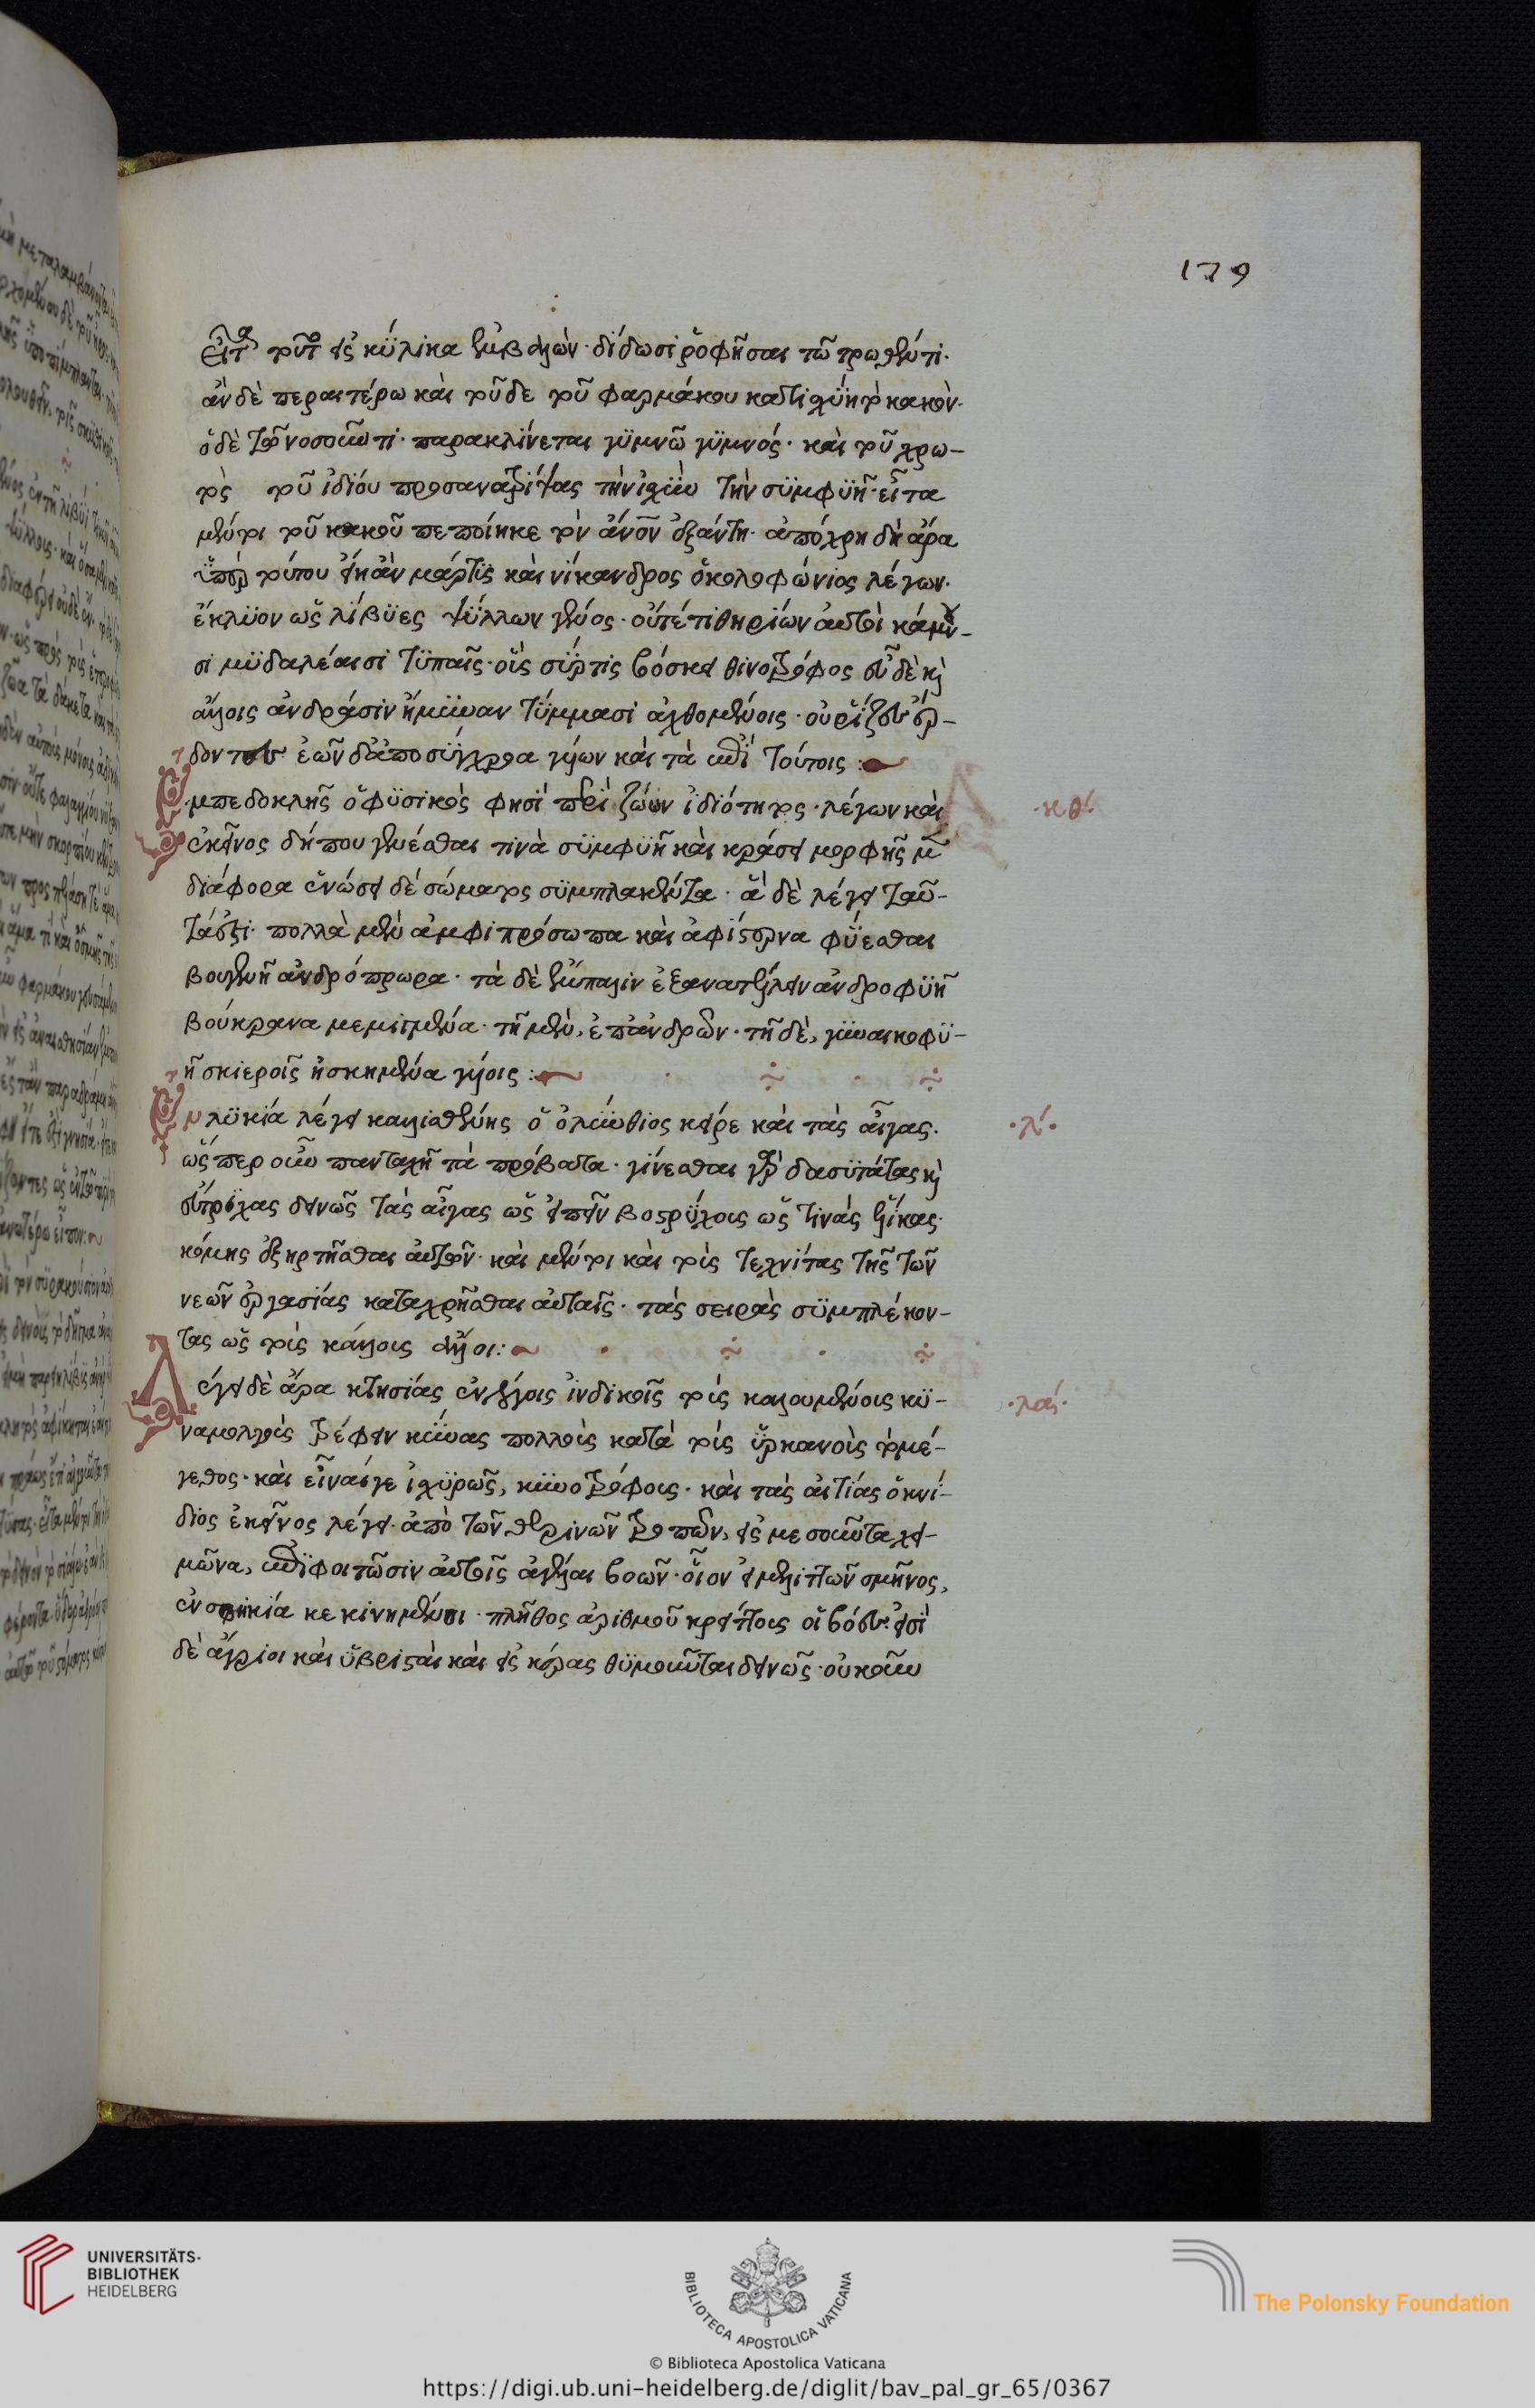 179
εἶτα τοῦτο εἰς κύλικα ἐμβαλὼν· δίδωσι ῥοφῆσαι τῶ τρωθέντι·
ἂν δὲ περαιτέρω καὶ τοῦδε τοῦ φαρμάκου κατισχύη τὸ κακὸν·
ὁ δὲ τῶ νοσοῦντι· παρακλίνεται γυμνῶ γυμνός· καὶ τοῦ χρω-
τὸς τοῦ ἰδίου προσανατρίψας τὴν ἰσχὺν τὴν συμφυῆ· εἶτα
μέντοι τοῦ κακοῦ πεποίηκε τὸν ἄνον ἐξάντη· ἀπόχρη δὴ ἄρα
ὑπὲρ τούτου εἴη ἂν μάρτυς καὶ νίκανδρος ὁ κολοφώνιος λέγων·
ἔκλυον ὡς λίβυες ψύλλων γένος· οὔτέ τι θηρίων αὐτοὶ κάμνου-
σι μυδαλέαισι τυπαῖς· οἷς σύρτις βόσκει θινοτρόφος εὖ δὲ κὶ
ἄλλοις ἀνδράσιν ἤμυναν τύμμασι ἀχθομένοις· οὐ ῥίζαις ἔρ-
δοντες· ἑῶν δ' ἀπο σύγχροα γυίων καὶ τὰ ἐπὶ τούτοις :
Ἐμπεδοκλῆς ὁ φυσικὸς φησὶ περὶ ζώων ἰδιότητος· λέγων καὶ ·κθ·
ἐκεῖνος δήπου γενέσθαι τινὰ συμφυῆ καὶ κράσει μορφῆς μὲν
διάφορα ἑνώσει δὲ σώματος συμπλακέντα· ἃ δὲ λέγει ταῦ-
τά ἐστι· πολλὰ μὲν ἀμφιπρόσωπα καὶ ἀμφίστερνα φύεσθαι
βουγενῆ ἀνδρόπρωρα· τὰ δὲ ἔμπαλιν ἐξανατέλλειν ἀνδροφυῆ
βούκρανα μεμιγμένα· τῆ μὲν, ἐπ' ἀνδρῶν· τῆ δὲ, γυναικοφυ-
ῆ σκιεροῖς ἠσκημένα γυίοις :
Ἐν λυκία λέγει καλλισθένης ὁ ὀλύνθιος κείρε καὶ τὰς αἶγας· ·λ·
ὥσπερ οὖν πανταχῆ τὰ πρόβατα· γίνεσθαι γὰρ δασυτάτας κὶ
εὔτριχας δεινῶς τὰς αἶγας ὡς εἰπεῖν βοστρύχοις ὥς τινὰς ἕλικας·
κόμης ἐξηρτῆσθαι αὐτῶν· καὶ μέντοι καὶ τοὺς τεχνίτας τῆς τῶν
νεῶν ἐργασίας καταχρῆσθαι αὐταῖς· τὰς σειρὰς συμπλέκον-
τας ὡς τοὺς κάλλοις ἄλλοι :
Λέγει δὲ ἄρα κτησίας ἐν λόγοις ἰνδικοῖς τοὺς καλουμένοις κυ- ·λα·
ναμολγοὺς τρέφειν κύνας πολλοὺς κατὰ τοὺς ὑρκανοὺς τὸ μέ-
γεθος· καὶ εἶναί γε ἰσχυρῶς, κυνοτρόφοις· καὶ τὰς αἰτίας ὁ κνί-
διος ἐκεῖνος λέγει· ἀπὸ τῶν θερινῶν τροπῶν, εἰς μεσοῦντα χει-
μῶνα, ἐπιφοιτῶσιν αὐτοῖς ἀγέλαι βοῶν· οἷον εἰ μελιττῶν σμῆνος,
ἐν σφηκία κεκινημένοι· πλῆθος ἀριθμοῦ κρείττοις οἱ βόες· εἰσὶ
δὲ ἄγριοι καὶ ὑβρισταὶ καὶ εἰς κέρας θυμοῦνται δεινῶς· οὐκοῦν
UNIVERSITÄTS-
BIBLIOTHEK
HEIDELBERG
BIBLIOTECA APOSTOLICA VATICANA
The Polonsky Foundation
© Biblioteca Apostolica Vaticana
https://digi.ub.uni-heidelberg.de/diglit/bav_pal_gr_65/0367